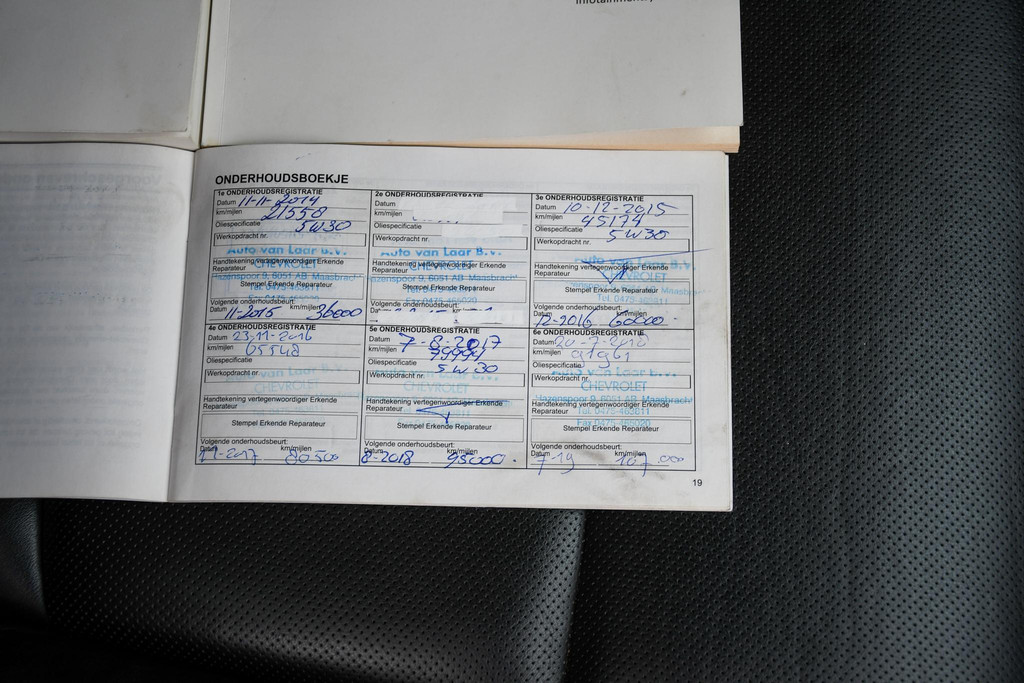 ONDERHOUDSBOEKJE
1e ONDERHOUDSREGISTRATIE
Datum 11-11-2014
km/mijlen 21558
Oliespecificatie 5W30
Werkopdracht nr.
Auto van Laar B.V.
CHEVROLET
Handtekening vertegenwoordiger Erkende
Reparateur
Hazenspoor 9, 6051 AB Maasbracht
Stempel Erkende Reparateur
Tel. 0475-463811
Volgende onderhoudsbeurt:
Datum 11-2015 km/mijlen 36000
2e ONDERHOUDSREGISTRATIE
Datum
km/mijlen
Oliespecificatie
Werkopdracht nr.
Auto van Laar B.V.
CHEVROLET
Handtekening vertegenwoordiger Erkende
Reparateur
Hazenspoor 9, 6051 AB Maasbracht
Stempel Erkende Reparateur
Fax 0475-465020
Volgende onderhoudsbeurt:
3e ONDERHOUDSREGISTRATIE
Datum 10-12-2015
km/mijlen 45174
Oliespecificatie 5W30
Werkopdracht nr.
Auto van Laar B.V.
CHEVROLET
Handtekening vertegenwoordiger Erkende
Reparateur
Stempel Erkende Reparateur
Tel. 0475-463811
Volgende onderhoudsbeurt:
Datum 12-2016 km/mijlen 60000
4e ONDERHOUDSREGISTRATIE
Datum 23-11-2016
km/mijlen 65548
Oliespecificatie
Werkopdracht nr.
Auto van Laar B.V.
CHEVROLET
Handtekening vertegenwoordiger Erkende
Reparateur
Stempel Erkende Reparateur
Volgende onderhoudsbeurt:
Datum 11-2017 km/mijlen 80500
5e ONDERHOUDSREGISTRATIE
Datum 7-8-2017
km/mijlen 79994
Oliespecificatie 5W30
Werkopdracht nr.
Handtekening vertegenwoordiger Erkende
Reparateur
Stempel Erkende Reparateur
Volgende onderhoudsbeurt:
Datum 8-2018 km/mijlen 95000
6e ONDERHOUDSREGISTRATIE
Datum 20-7-2018
km/mijlen 91961
Oliespecificatie
Werkopdracht nr.
Auto van Laar B.V.
CHEVROLET
Hazenspoor 9, 6051 AB Maasbracht
Handtekening vertegenwoordiger Erkende
Reparateur
Tel. 0475-463811
Fax 0475-465020
Stempel Erkende Reparateur
Volgende onderhoudsbeurt:
Datum 7 19 km/mijlen 107.000
19